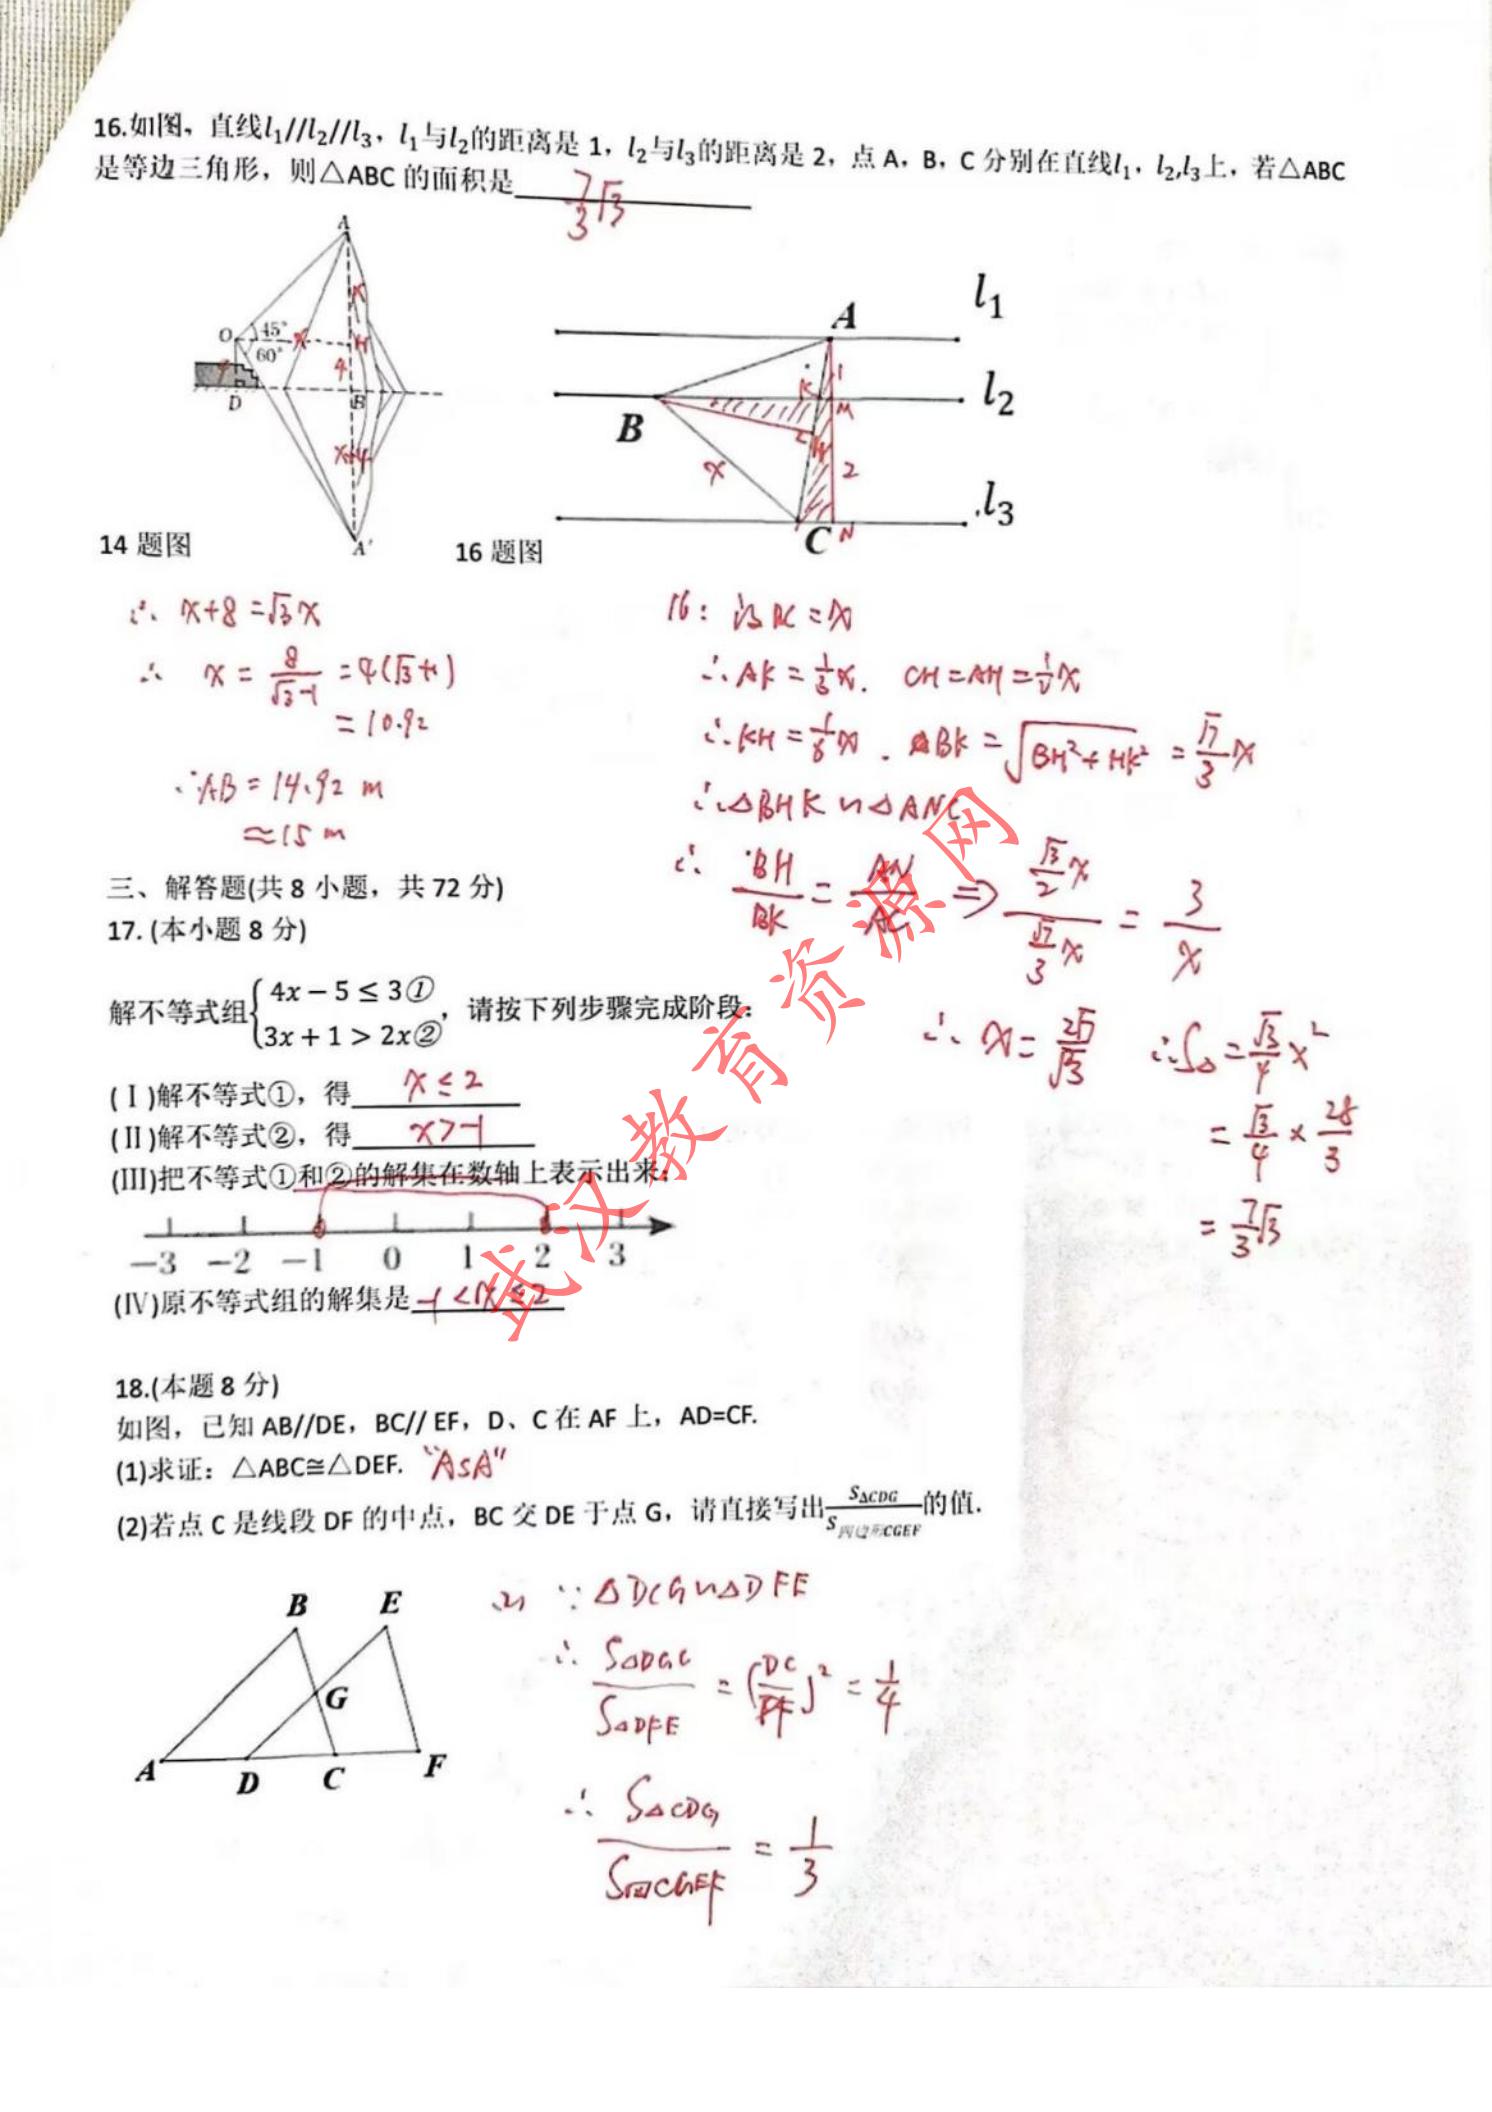 16.如图，直线l₁//l₂//l₃，l₁与l₂的距离是 1，l₂与l₃的距离是 2，点 A，B，C 分别在直线l₁，l₂,l₃上，若△ABC
是等边三角形，则△ABC 的面积是 7/3√3
A
O 45° x x H
60°
4 4
D B
x+4
A'
14 题图
l₁
A
K 1
l₂
M
B
H
x 2
l₃
C N
16 题图
∴ x+8=√3x
∴ x = 8/(√3-1) = 4(√3+1)
= 10.92
∴AB = 14.92 m
≈15 m
16: 设BC=x
∴AK=1/3x. CH=AH=1/2x
∴KH=1/6x. BK=√(BH²+HK²) = √7/3 x
∴△BHK∽△ANC
∴ BH/BK = AN/AC ⇒ (√3/2 x)/(√7/3 x) = 3/x
∴ x= 2√7/√3 ∴S△=√3/4 x²
= √3/4 × 28/3
= 7/3√3
三、解答题(共 8 小题，共 72 分)
17. (本小题 8 分)
解不等式组{4x－5 ≤ 3① 3x + 1 > 2x②，请按下列步骤完成阶段：
(Ⅰ)解不等式①，得 x≤2
(Ⅱ)解不等式②，得 x>-1
(Ⅲ)把不等式①和②的解集在数轴上表示出来：
−3 −2 −1 0 1 2 3
(Ⅳ)原不等式组的解集是 -1<x≤2
18.(本题 8 分)
如图，已知 AB//DE，BC// EF，D、C 在 AF 上，AD=CF.
(1)求证：△ABC≅△DEF. "ASA"
(2)若点 C 是线段 DF 的中点，BC 交 DE 于点 G，请直接写出 S△CDG/S四边形CGEF 的值.
B E
G
A D C F
∵ △DCG∽△DFE
∴ S△DGC/S△DFE = (DC/DF)² = 1/4
∴ S△CDG/S四CGEF = 1/3
武汉教育资源网